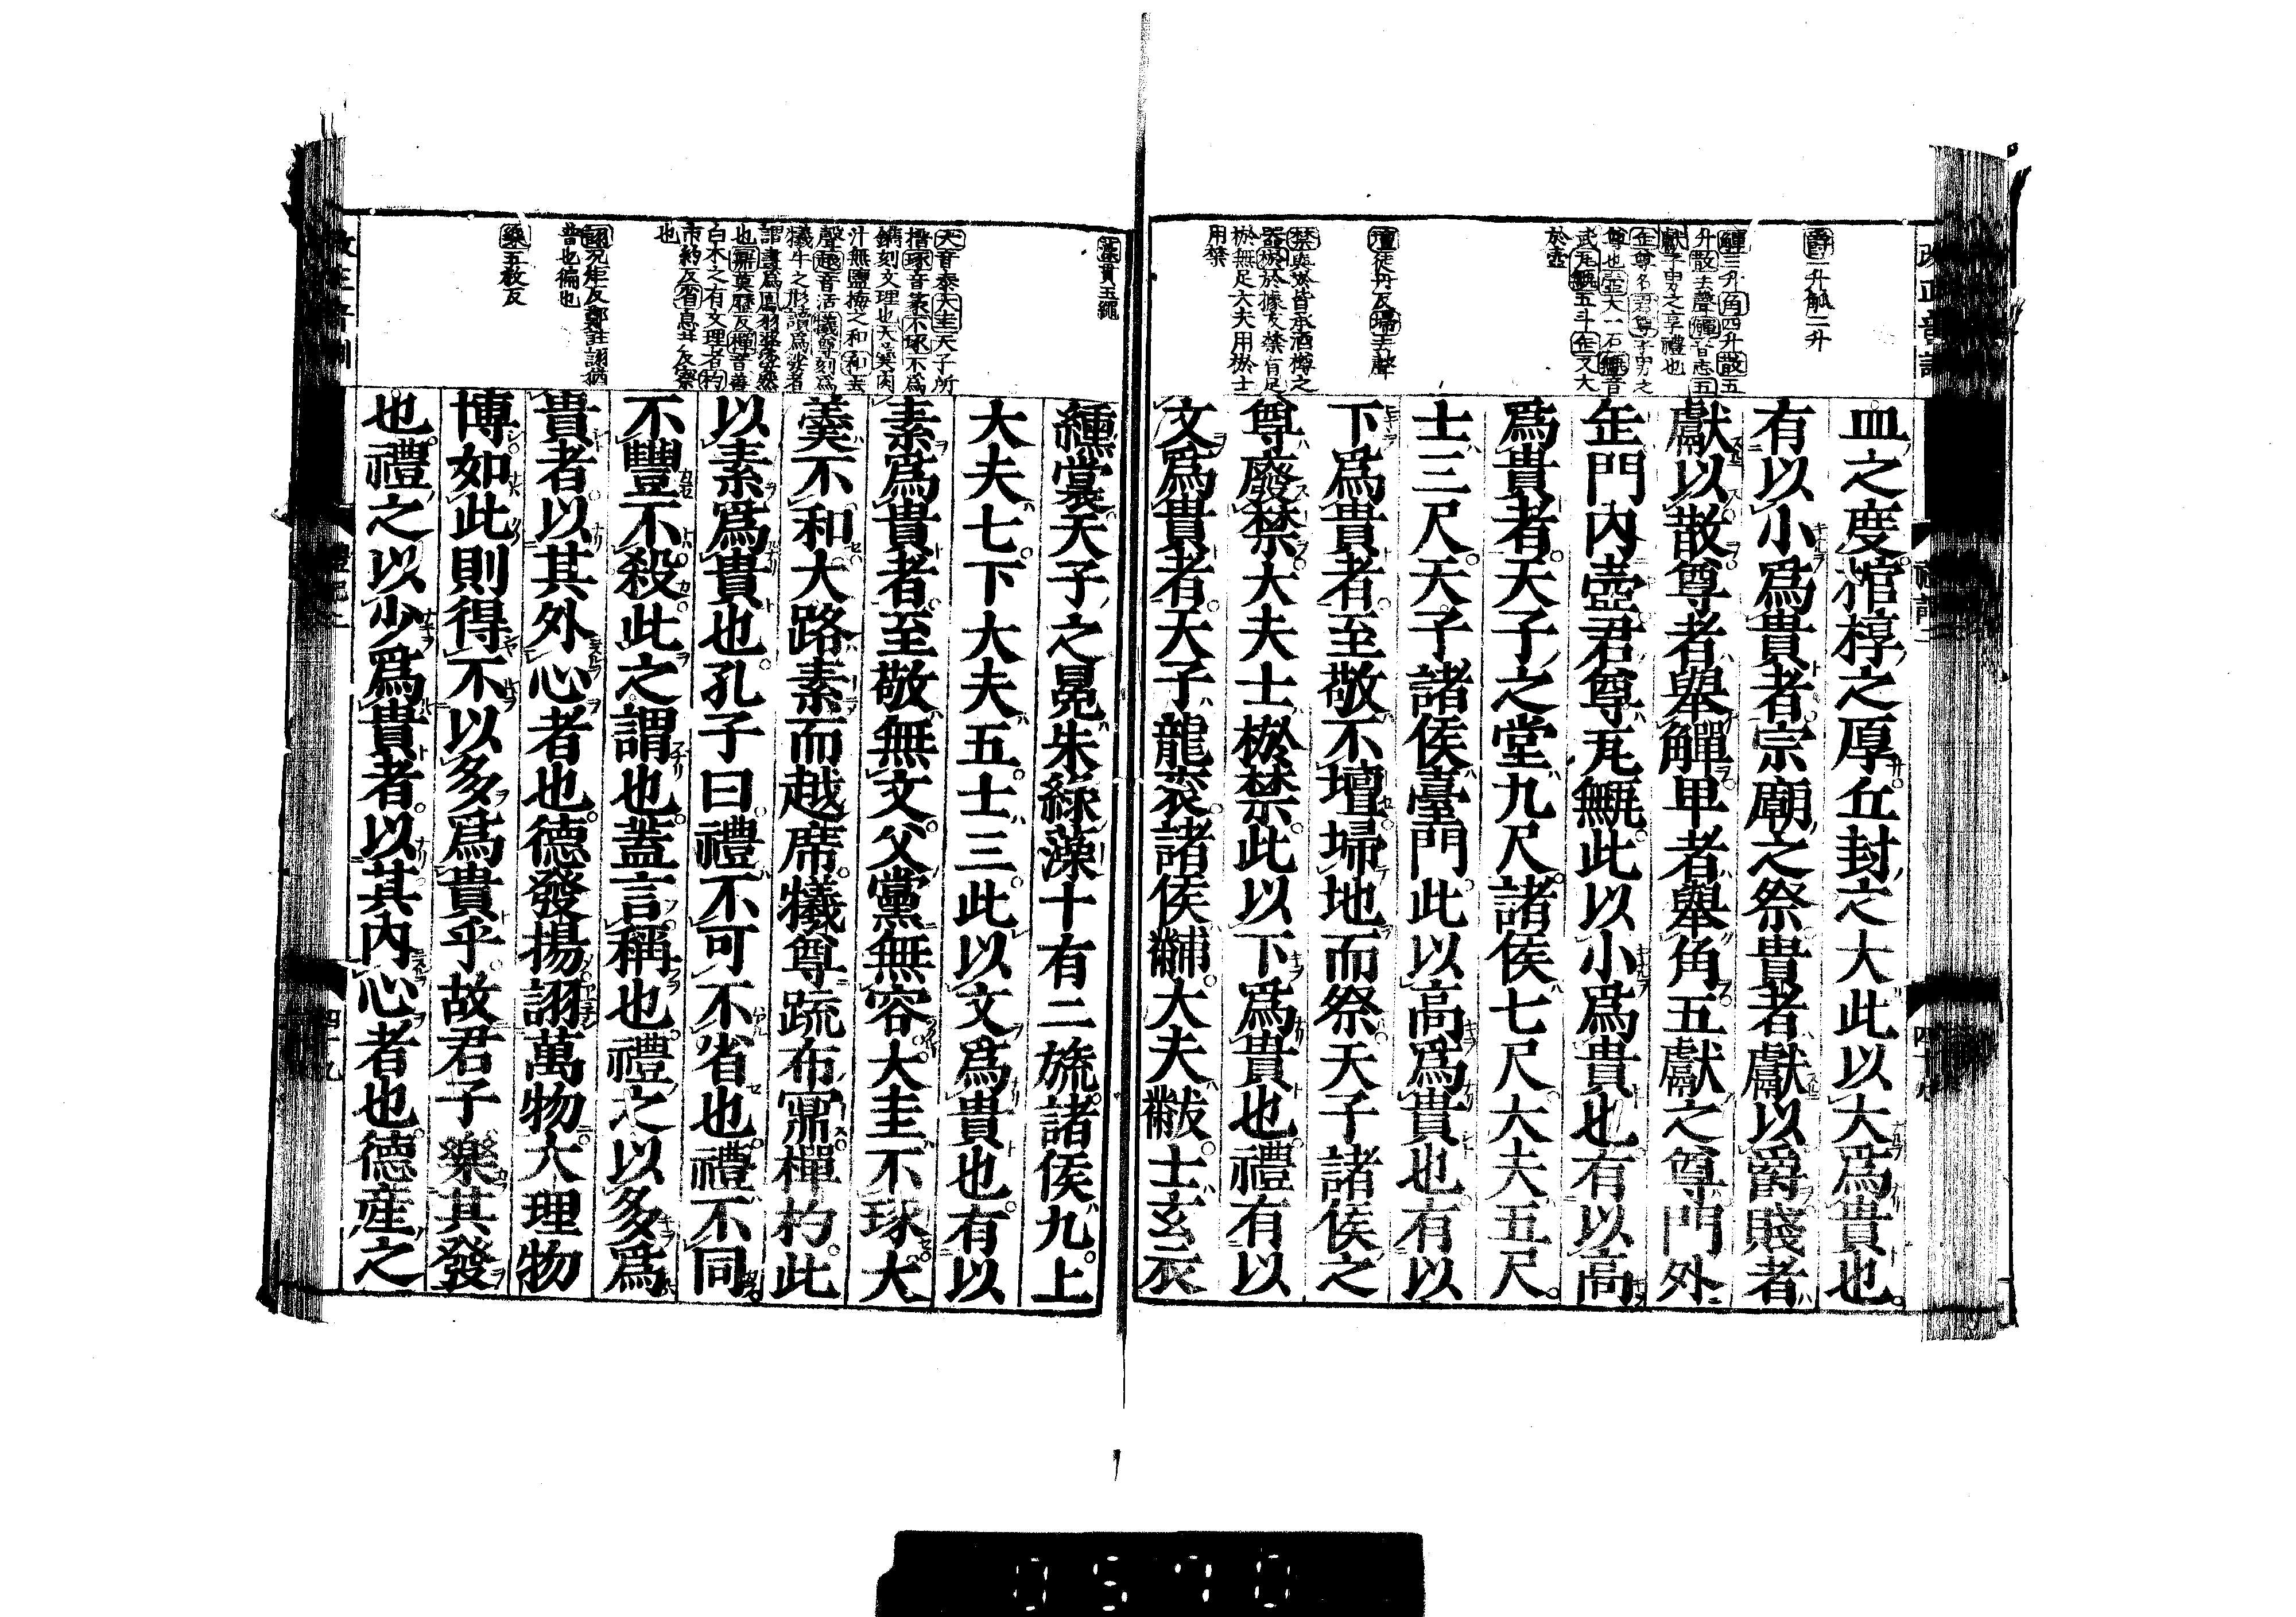 血之度棺椁之厚丘封之大此以大爲貴也
有以小爲貴者宗廟之祭貴者獻以爵賤者
獻以散尊者舉觶卑者舉角五獻之尊門外
缶門内壺君尊瓦甒此以小爲貴也有以高
爲貴者天子之堂九尺諸侯七尺大夫五尺
士三尺天子諸侯臺門此以高爲貴也有以
下爲貴者至敬不壇埽地而祭天子諸侯之
尊廢禁大夫士棜禁此以下爲貴也禮有以
文爲貴者天子龍衮諸侯黼大夫黻士玄衣
纁裳天子之冕朱綠藻十有二旒諸侯九上
大夫七下大夫五士三此以文爲貴也有以
素爲貴者至敬無文父黨無容大圭不琢大
羹不和大路素而越席犧尊疏布鼏樿杓此
以素爲貴也孔子曰禮不可不省也禮不同
不豐不殺此之謂也蓋言稱也禮之以多爲
貴者以其外心者也德發揚詡萬物大理物
博如此則得不以多爲貴乎故君子樂其發
也禮之以少爲貴者以其内心者也德産之
爵一升觚二升
觶三升角四升散五
升散去聲觶音志五
獻子男之享禮也
缶尊名君尊子男之
尊也壺大一石甒音
武瓦甒五斗缶又大
於壺
壇徒丹反埽去聲
禁與棜皆承酒樽之
器棜於據反禁有足
棜無足大夫用棜士
用禁
藻貫玉繩
大音泰大圭天子所
搢琢音篆不琢不爲
鐫刻文理也大羹肉
汁無鹽梅之和和去
聲越音活犧尊刻爲
犧牛之形讀爲娑者
謂畫爲鳳羽婆娑然
也鼏莫歷反樿音善
白木之有文理者杓
市約反省息井反察
也
詡况矩反鄭註詡猶
普也徧也
樂五教反
禮記二
四十九
0570